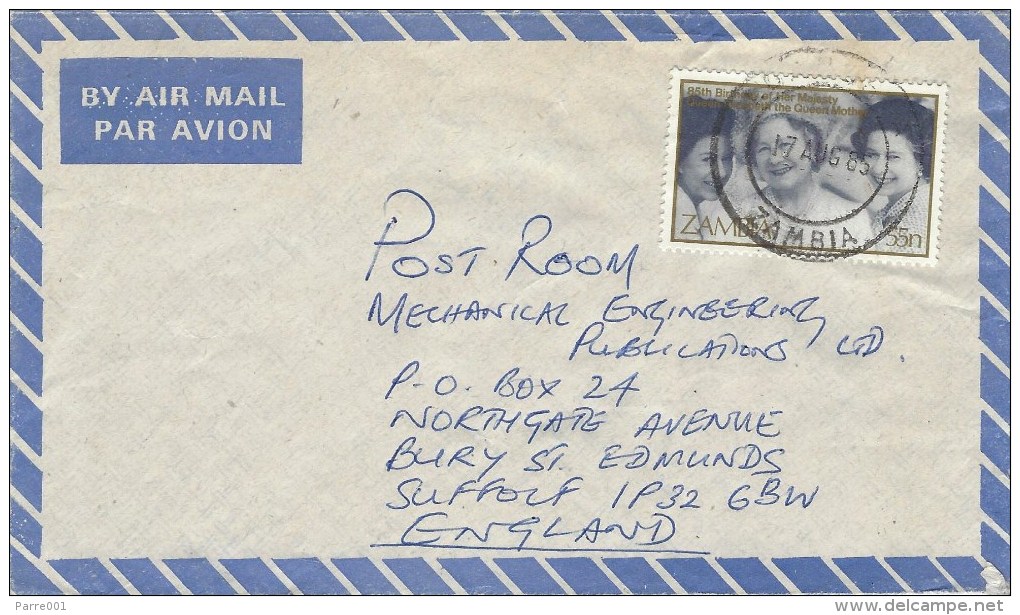 BY AIR MAIL
PAR AVION
85th Birthday of Her Majesty
the Queen Mother
ZAMBIA
55n
17 AUG 85
ZAMBIA
POST ROOM
MECHANICAL ENGINEERING
PUBLICATIONS LTD.
P.O. BOX 24
NORTHGATE AVENUE
BURY ST. EDMUNDS
SUFFOLK IP32 6BW
ENGLAND
Parre001
www.delcampe.net